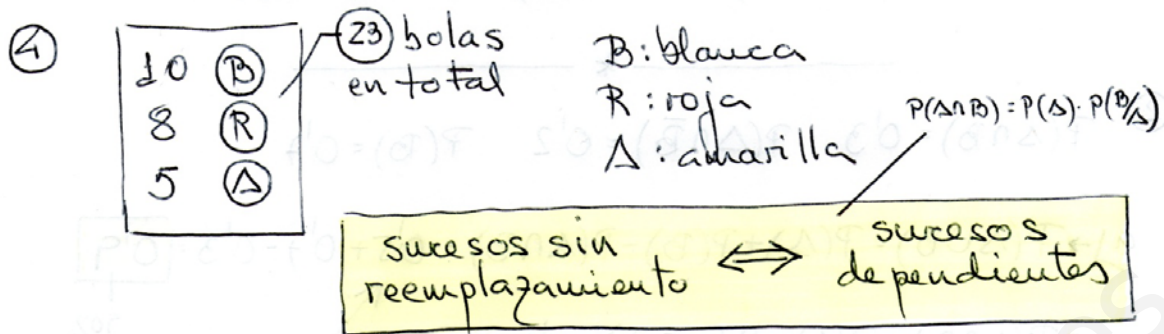 ④
10 Ⓑ
8 Ⓡ
5 Ⓐ
㉓ bolas
en total
B: blanca
R: roja
A: amarilla
P(A∩B) = P(A) · P(B/A)
sucesos sin
reemplazamiento
⟺
sucesos
dependientes